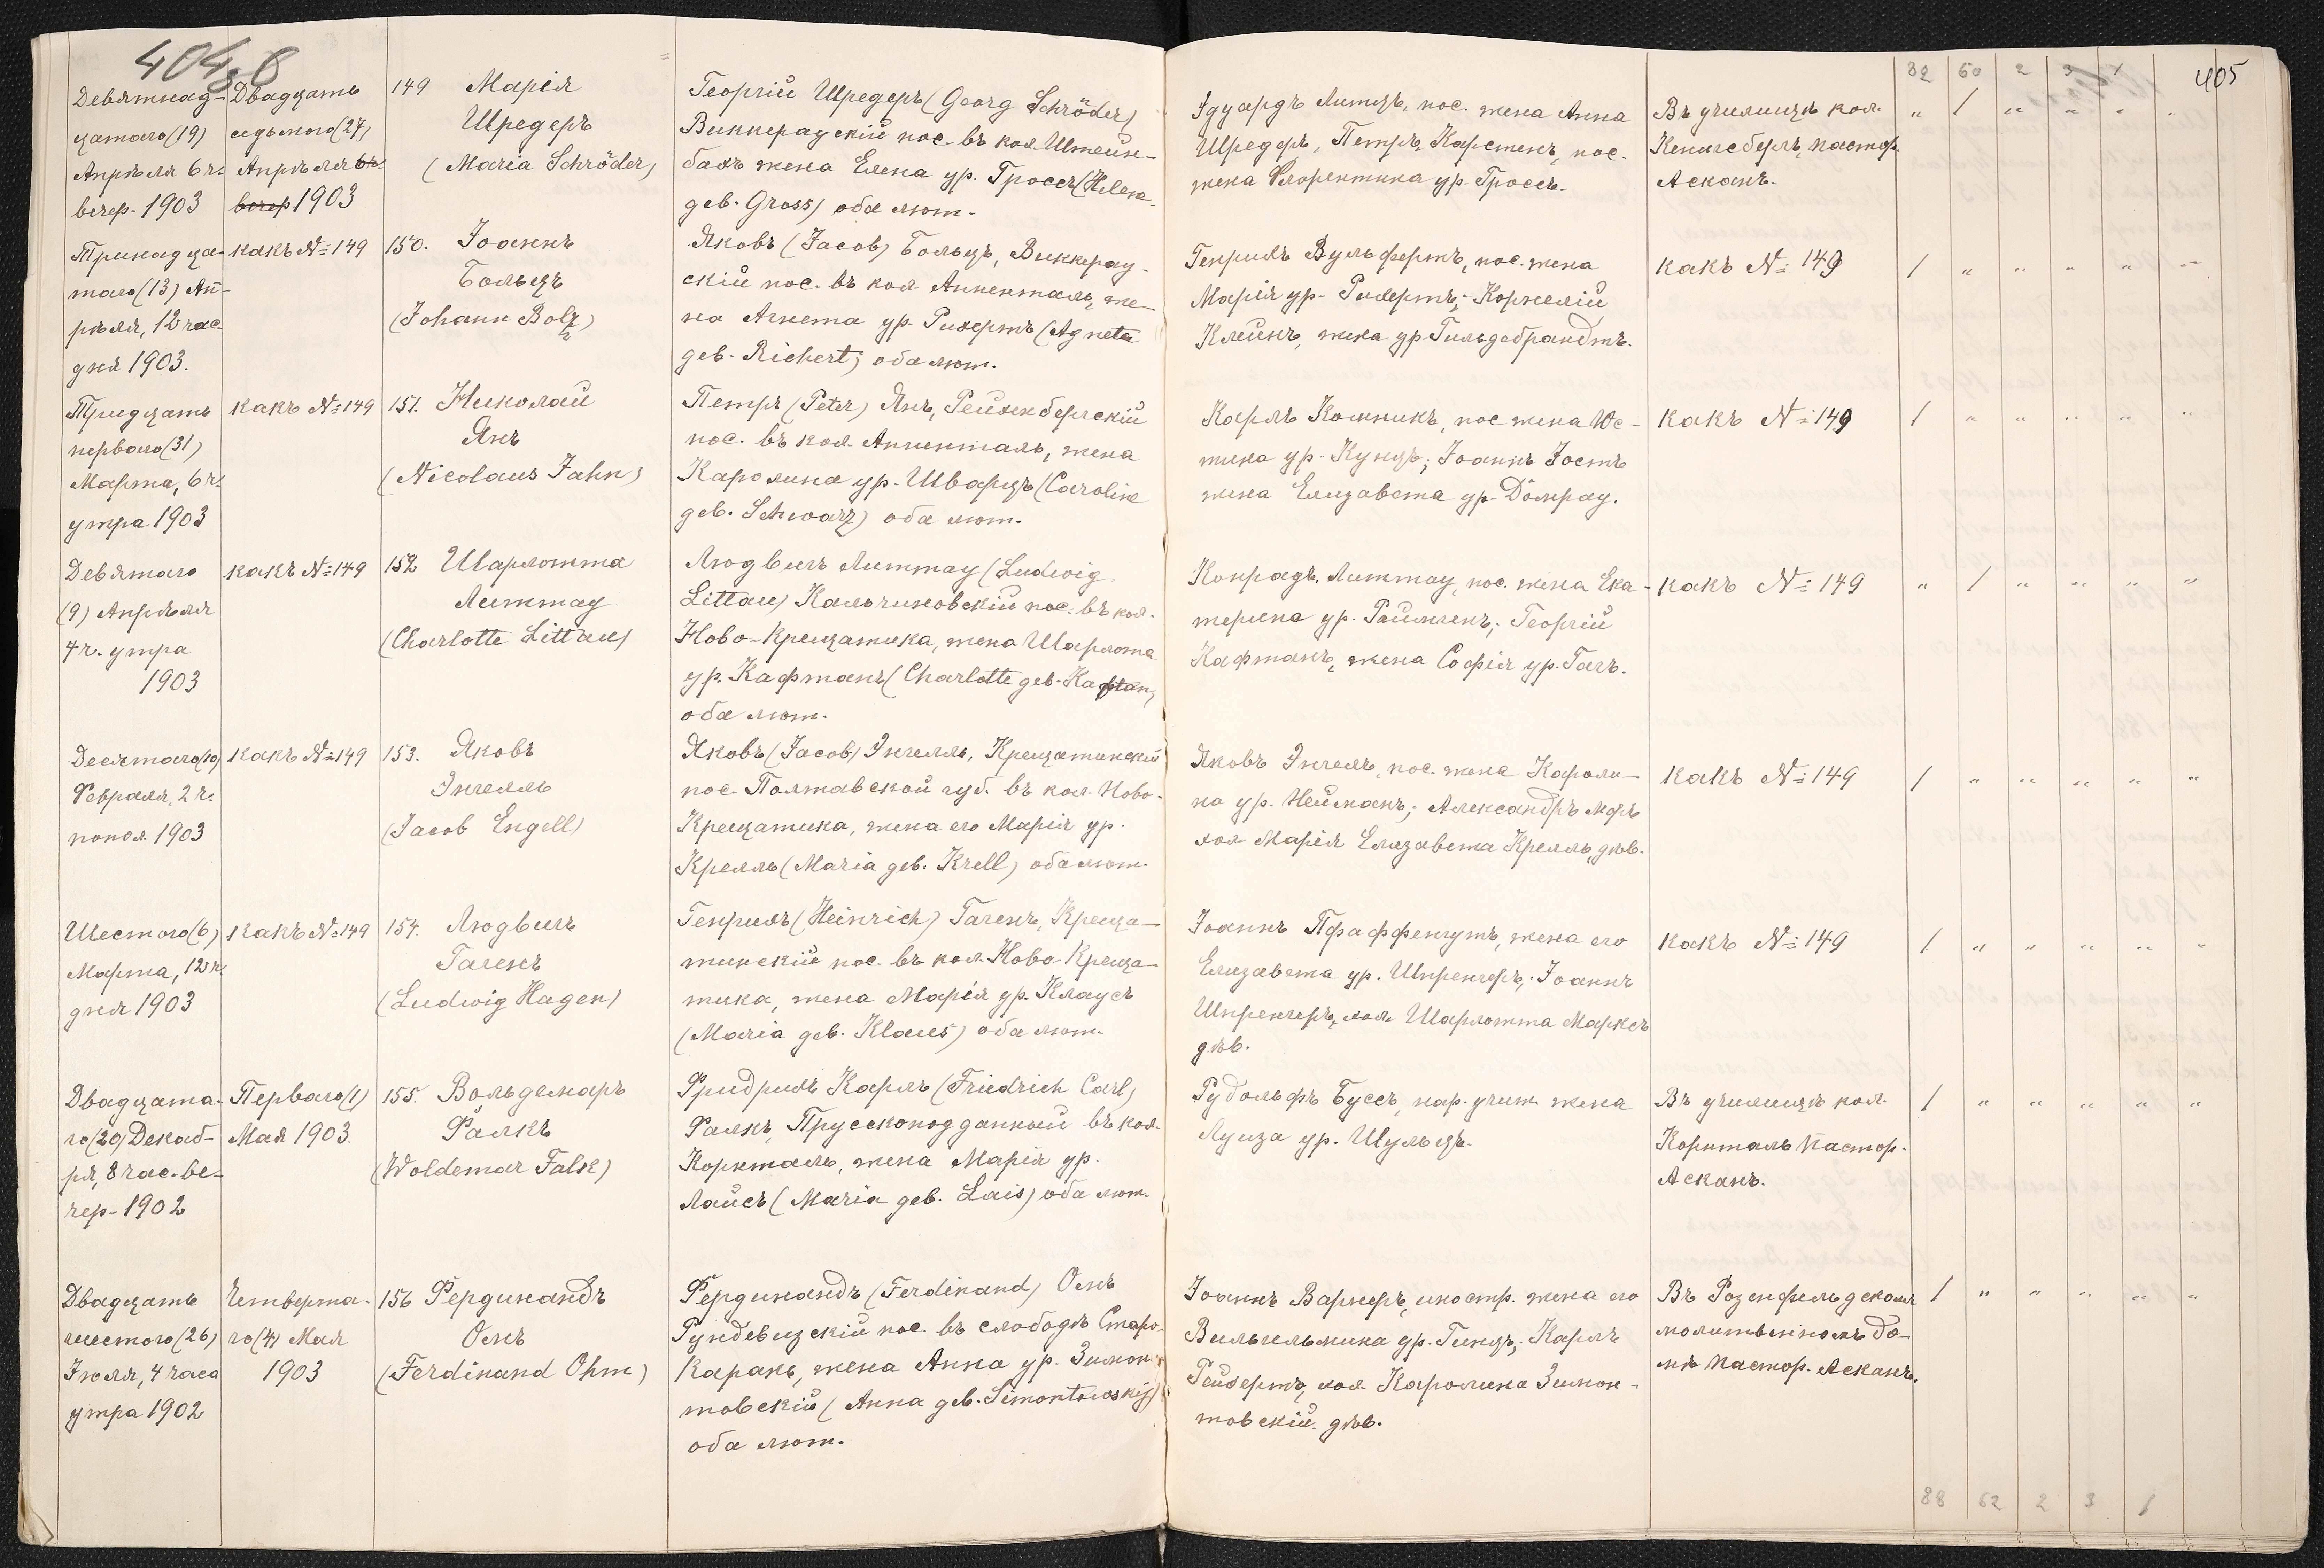 404 об
405
82 60 2 3 1
Девятнад-
цатаго (19)
Апрѣля 6 ч.
вечер. 1903
Двадцать
седьмого (27)
Апрѣля
вечер 1903
149 Марія
Шредеръ
(Maria Schröder)
Георгій Шредеръ (Georg Schröder)
Виккераускій пос. въ кол. Штейн-
бахъ жена Елена ур. Гроссъ (Helena
geb. Gross) оба лют.
Эдуардъ Литцъ, пос. жена Анна
Шредеръ, Петръ Карстенъ, пос.
жена Флорентина ур. Гроссъ.
Въ училищѣ кол.
Кенигсбергъ, пастор.
Асканъ.
" / " " " "
Тринадца-
таго (13) Ап-
рѣля, 12 час
дня 1903.
какъ № 149
150. Іоаннъ
Больцъ
(Johann Bolz)
Яковъ (Jacob) Больцъ, Виккерау-
скій пос. въ кол. Анненталь, же-
на Агнета ур. Рихертъ (Agneta
geb. Richert) оба лют.
Генрихъ Вульфертъ, пос. жена
Марія ур. Рихертъ; Корнелій
Клейнъ, жена ур. Гильдебрандтъ.
какъ № 149
/ " " " " "
Тридцать
перваго (31)
Марта, 6 ч.
утра 1903
какъ № 149
151. Николай
Янъ
(Nicolaus Jahn)
Петръ (Peter) Янъ, Рейхенбергскій
пос. въ кол. Анненталь, жена
Каролина ур. Шварцъ (Caroline
geb. Schwarz) оба лют.
Карлъ Кожникъ, пос жена Юс-
тина ур. Кунцъ; Іоаннъ Іостъ
жена Елизавета ур. Домрау.
какъ № 149
/ " " " " "
Девятаго
(9) Апрѣля
4 ч. утра
1903
какъ № 149
152 Шарлотта
Литтау
(Charlotte Littau)
Людвигъ Литтау (Ludwig
Littau) Кальчиновскій пос. въ кол.
Ново-Крещатика, жена Шарлота
ур. Кафтанъ (Charlotte geb. Kaftan)
оба лют.
Конрадъ Литтау, пос. жена Ека-
терина ур. Раймгенъ; Георгій
Кафтанъ, жена Софія ур. Гагъ.
какъ № 149
" / " " " "
Десятаго (10)
Февраля, 2 ч.
попол. 1903
какъ № 149
153. Яковъ
Энгелль
(Jacob Engell)
Яковъ (Jacob) Энгелль, Крещатинскій
пос. Полтавской губ. въ кол. Ново-
Крещатика, жена его Марія ур.
Крелль (Maria geb. Krell) оба лют.
Яковъ Энгель, пос. жена Кароли-
на ур. Нейманъ; Александръ
хол. Марія Елизавета Крелль, дѣв.
какъ № 149
/ " " " " "
Шестого (6)
Марта, 12 ч.
дня 1903
какъ № 149
154. Людвигъ
Гагенъ
(Ludwig Hagen)
Генрихъ (Heinrich) Гагенъ, Креща-
тинскій пос. въ кол. Ново Креща-
тика, жена Марія ур. Клаусъ
(Maria geb. Klaus) оба лют.
Іоаннъ Пфаффенгутъ, жена его
Елизавета ур. Шпренгеръ; Іоаннъ
Шпренгеръ, хол. Шарлотта Марксъ
дѣв.
какъ № 149
/ " " " " "
Двадцата-
го (20) Декаб-
ря, 8 час. ве-
чер. 1902
Перваго (1)
Мая 1903.
155. Вольдемаръ
Фалкъ
(Woldemar Falk)
Фридрихъ Карлъ (Friedrich Carl)
Фалкъ, Прусскоподданный въ кол.
Корнталь, жена Марія ур.
Лайсъ (Maria geb. Lais) оба лют.
Рудольфъ Буссъ, нар. учит. жена
Луиза ур. Шульцъ.
Въ училищѣ кол.
Корнталь пастор.
Асканъ.
/ " " " " "
Двадцать
шестого (26)
Іюля, 4 часа
утра 1902
Четверта-
го (4) Мая
1903
156 Фердинандъ
Омъ
(Ferdinand Ohm)
Фердинандъ (Ferdinand) Омъ
Рундевизскій пос. въ слободѣ Старо-
Каракъ, жена Анна ур. Зимон-
товскій (Anna geb. Simontowskij)
оба лют.
Іоаннъ Варнеръ, иностр. жена его
Вильгельмина ур. Гинцъ; Карлъ
Рейхертъ, хол. Каролина Зимон-
товскій дѣв.
Въ Розенфельдском
молитвенномъ до-
мѣ пастор. Асканъ.
/ " " " " "
88 62 2 3 1